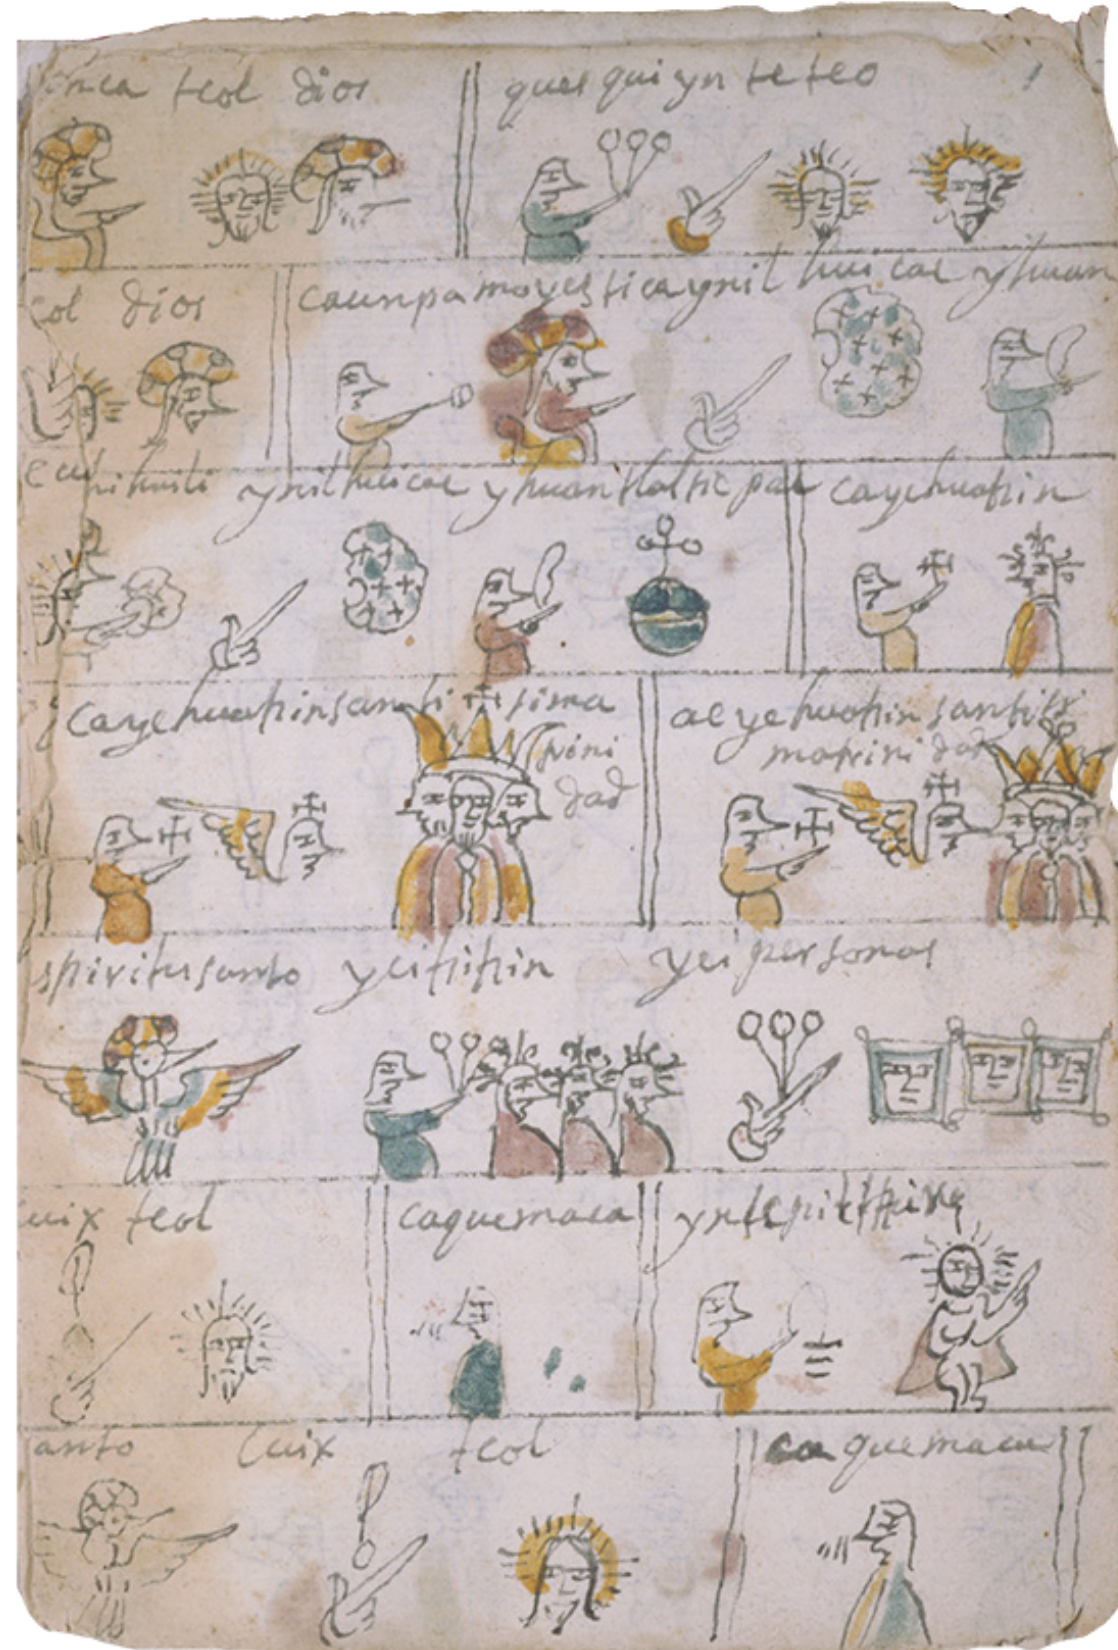 teol dios quesqui yn teteo
dios caunpa moyestica ynil huicac yhuan
ynilhuicac yhuan tlalticpac cayehuatzin
cayehuatzin santi sima
trini
dad
acyehuatzin santisi
matrinidad
spiritusanto yeitzitzin yei personas
cuix teol caquemaca
anto cuix teol caquemaca